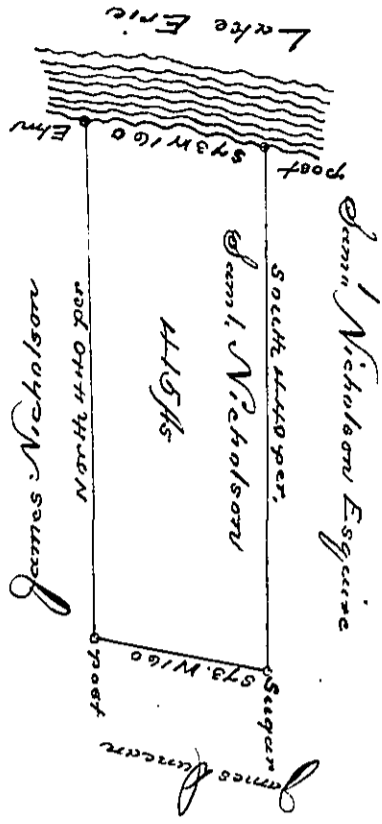 Lake Erie
Elm
S73W160
post
Sam<sup>l</sup> Nicholson Esquire
South 440 per.
Sam<sup>l</sup>, Nicholson
415 As
North 440 per
James Nicholson
post
S73.W160
Sugar
James Duncan